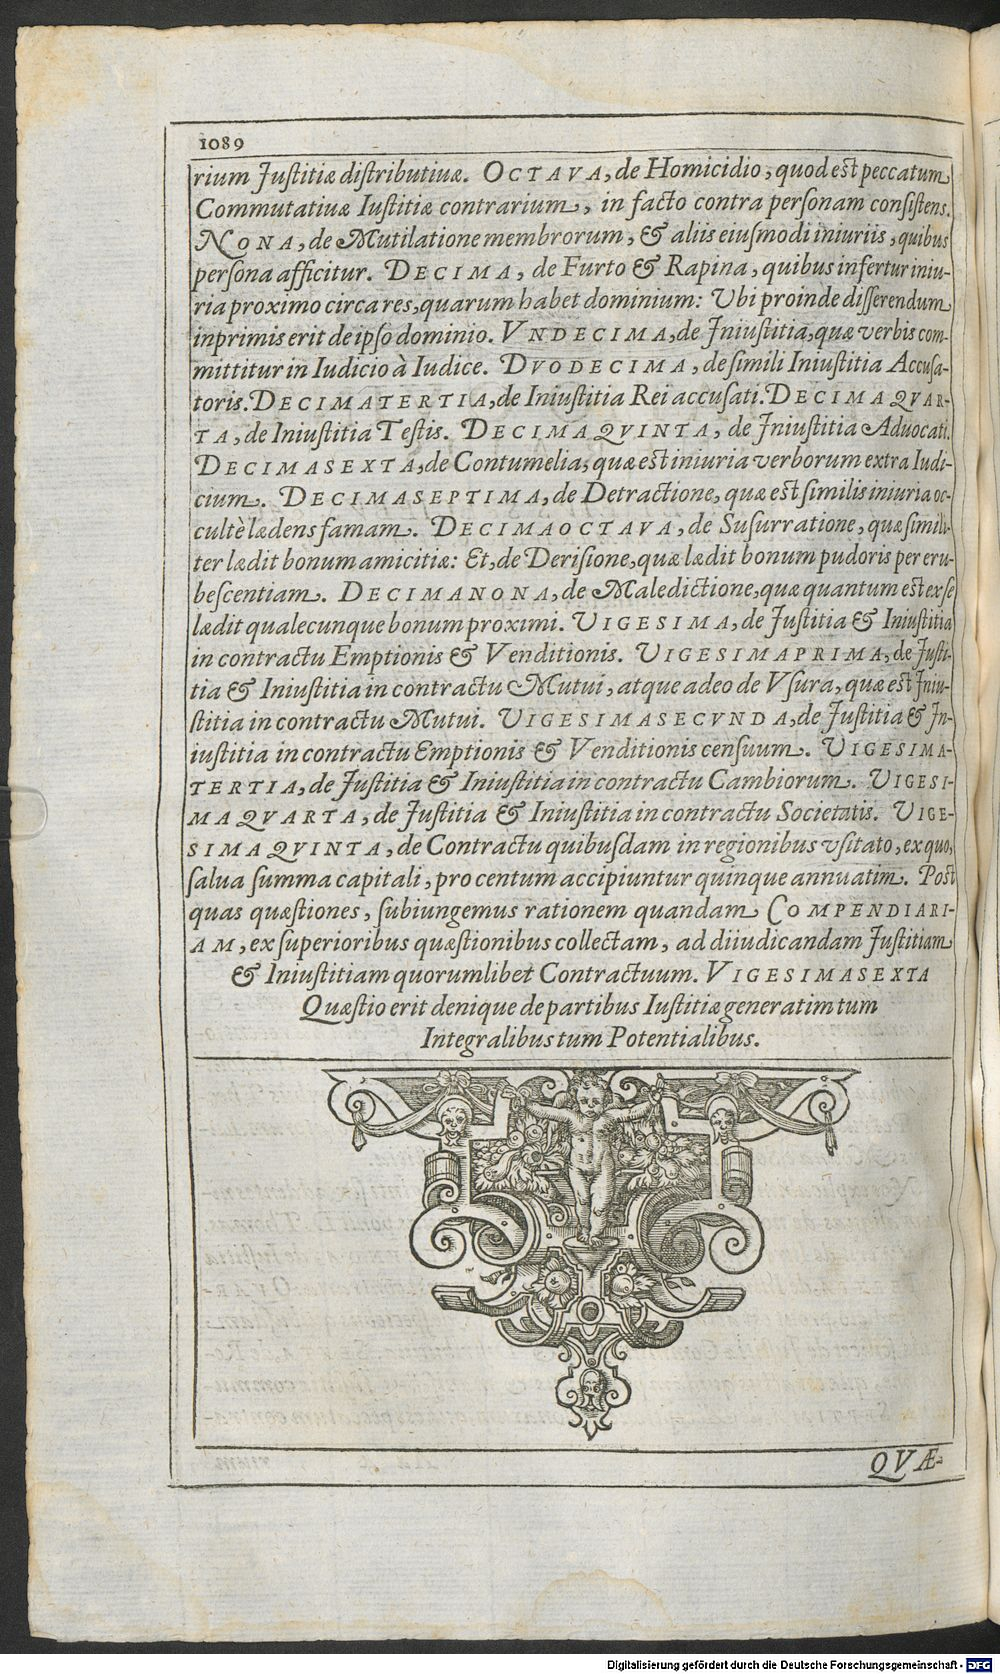 1089
rium Juſtitiæ diſtributiuæ. OCTAVA, de Homicidio, quod eſt peccatum
Commutatiuæ Iuſtitiæ contrarium, in facto contra perſonam conſiſtens.
NONA, de Mutilatione membrorum, & aliis eiuſmodi iniuriis, quibus
perſona afficitur. DECIMA, de Furto & Rapina, quibus infertur iniu-
ria proximo circa res, quarum habet dominium: Vbi proinde diſſerendum
inprimis erit de ipſo dominio. VNDECIMA, de Jniuſtitia, quæ verbis com-
mittitur in Iudicio à Iudice. DVODECIMA, de ſimili Iniuſtitia Accuſa-
toris. DECIMATERTIA, de Iniuſtitia Rei accuſati. DECIMAQVAR-
TA, de Iniuſtitia Teſtis. DECIMAQVINTA, de Jniuſtitia Aduocati.
DECIMASEXTA, de Contumelia, quæ eſt iniuria verborum extra Iudi-
cium. DECIMASEPTIMA, de Detractione, quæ eſt ſimilis iniuria oc-
cultè lædens famam. DECIMAOCTAVA, de Suſurratione, quæ ſimili-
ter lædit bonum amicitiæ: Et, de Deriſione, quæ lædit bonum pudoris per eru-
beſcentiam. DECIMANONA, de Maledictione, quæ quantum eſt ex ſe
lædit qualecunque bonum proximi. VIGESIMA, de Juſtitia & Iniuſtitia
in contractu Emptionis & Venditionis. VIGESIMAPRIMA, de Juſti-
tia & Iniuſtitia in contractu Mutui, atque adeo de Vſura, quæ eſt Jniu-
ſtitia in contractu Mutui. VIGESIMASECVNDA, de Juſtitia & Jn-
iuſtitia in contractu Emptionis & Venditionis cenſuum. VIGESIMA-
TERTIA, de Juſtitia & Iniuſtitia in contractu Cambiorum. VIGESI-
MAQVARTA, de Juſtitia & Iniuſtitia in contractu Societatis. VIGE-
SIMAQVINTA, de Contractu quibuſdam in regionibus vſitato, ex quo,
ſalua ſumma capitali, pro centum accipiuntur quinque annuatim. Poſt
quas quæſtiones, ſubiungemus rationem quandam COMPENDIARI-
AM, ex ſuperioribus quæſtionibus collectam, ad diiudicandam Juſtitiam
& Iniuſtitiam quorumlibet Contractuum. VIGESIMASEXTA
Quæſtio erit denique de partibus Iuſtitiæ generatim tum
Integralibus tum Potentialibus.
QVÆ-
Digitalisierung gefördert durch die Deutsche Forschungsgemeinschaft - DFG